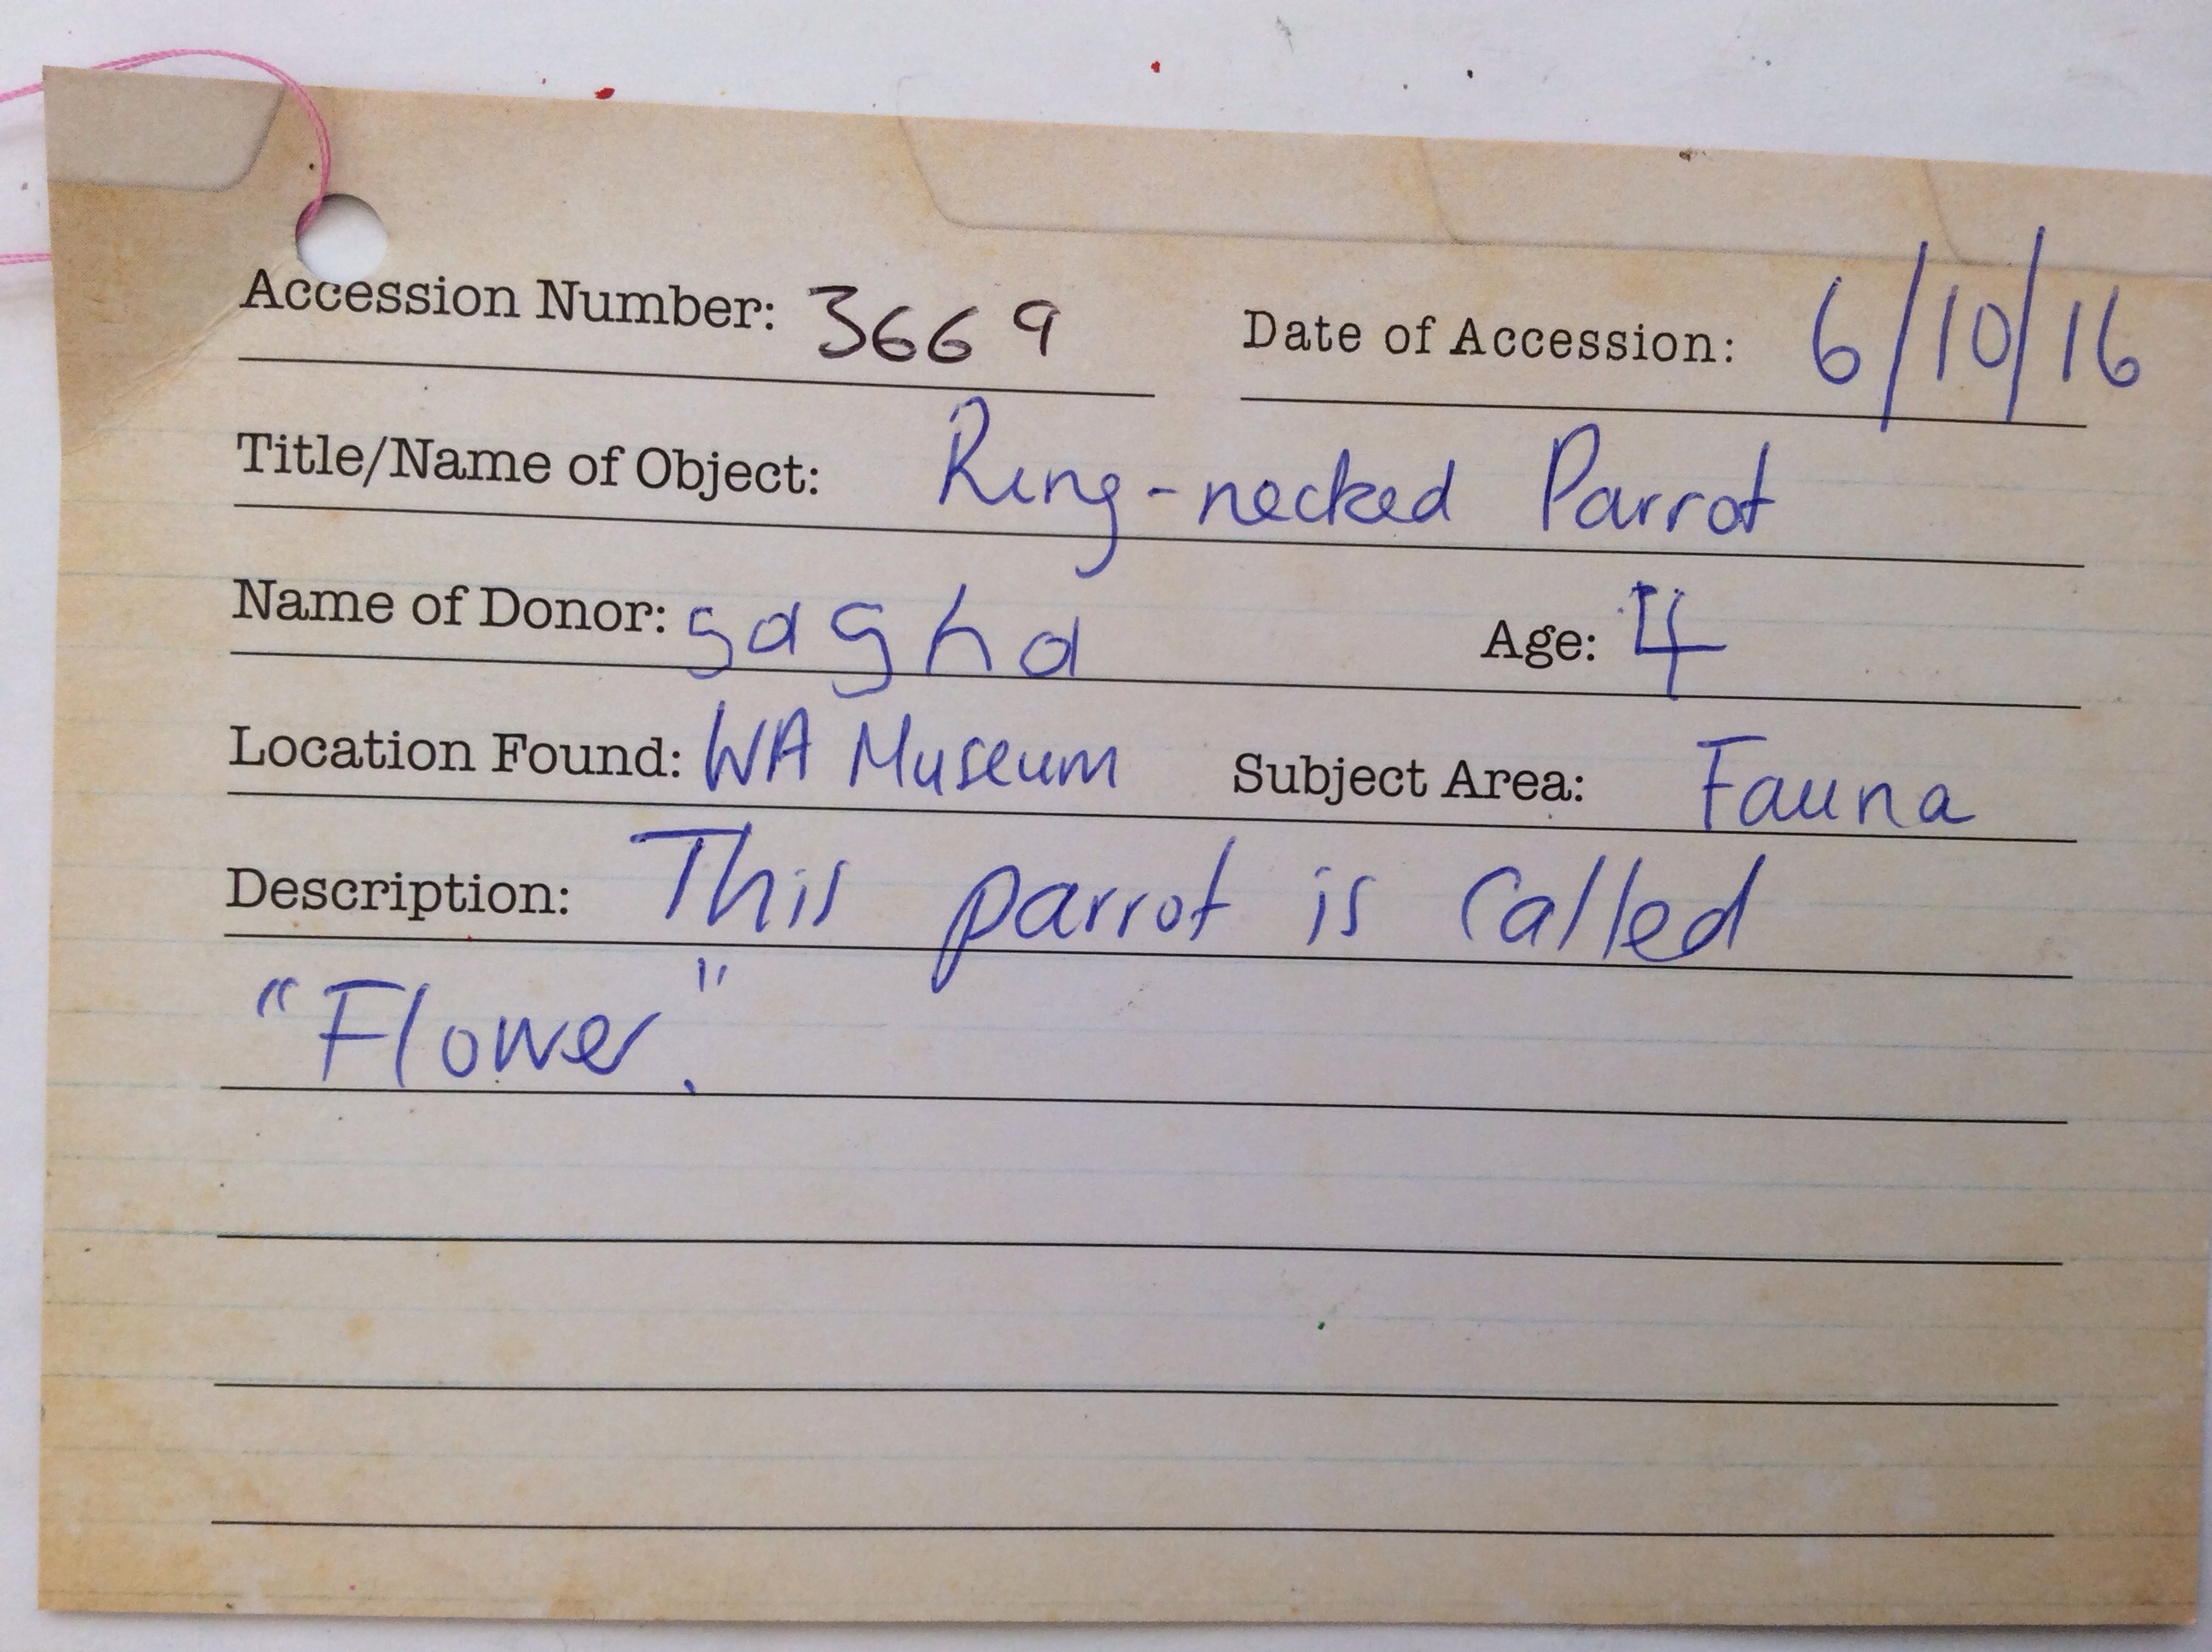 Accession Number: 3669 Date of Accession: 6/10/16
Title/Name of Object: Ring-necked Parrot
Name of Donor: sasha Age: 4
Location Found: WA Museum Subject Area: Fauna
Description: This parrot is called
"Flower."